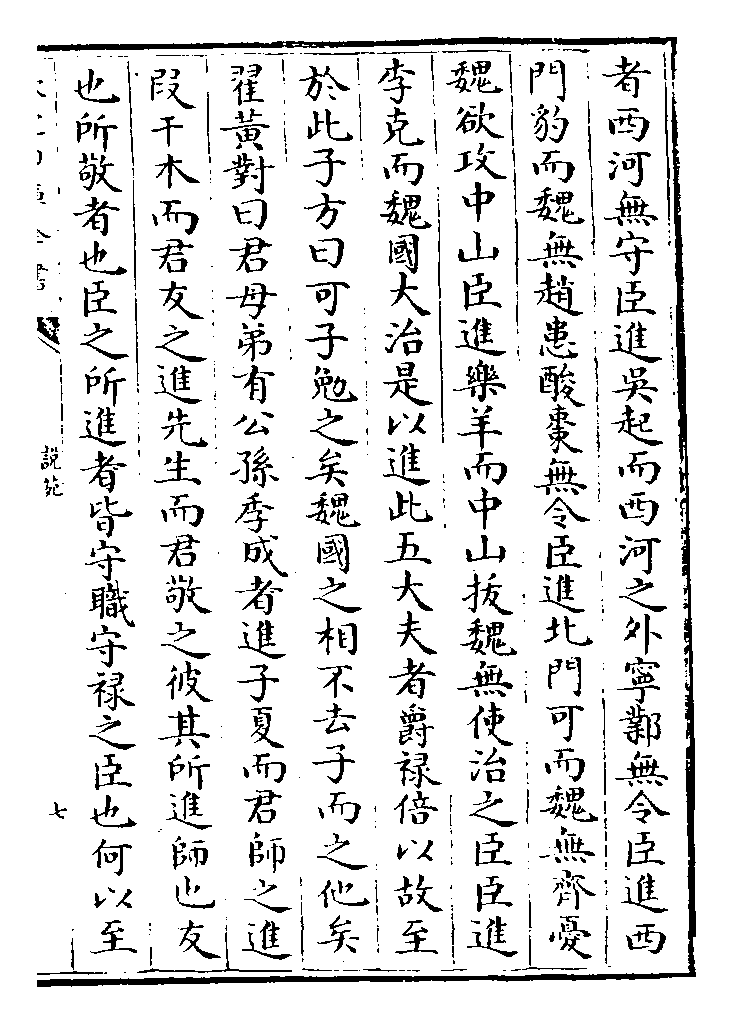 者西河無守臣進吳起而西河之外寧鄴無令臣進西
門豹而魏無趙患酸棗無令臣進北門可而魏無齊憂
魏欲攻中山臣進樂羊而中山拔魏無使治之臣臣進
李克而魏國大治是以進此五大夫者爵禄倍以故至
於此子方曰可子勉之矣魏國之相不去子而之他矣
翟黃對曰君母弟有公孫季成者進子夏而君師之進
段干木而君友之進先生而君敬之彼其所進師也友
也所敬者也臣之所進者皆守職守禄之臣也何以至
說苑
七